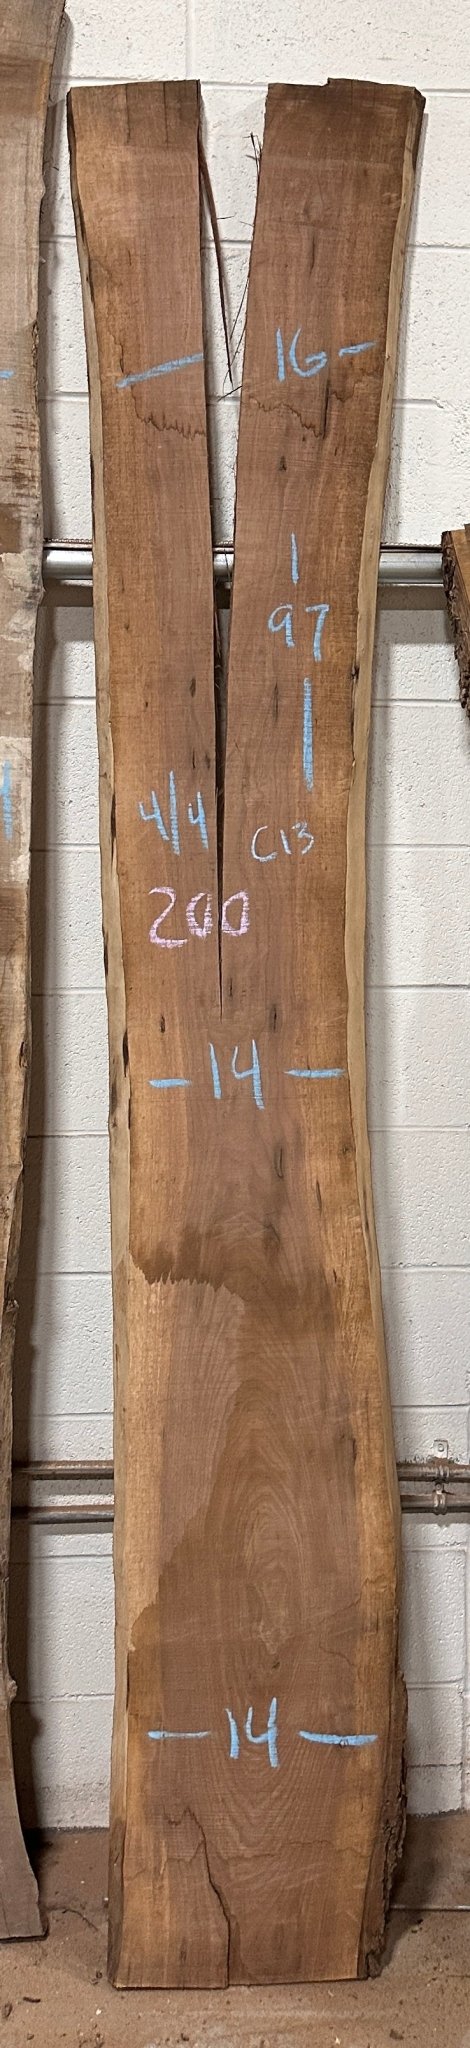 - 16 -
97
4/4
C13
200
- 14 -
- 14 -